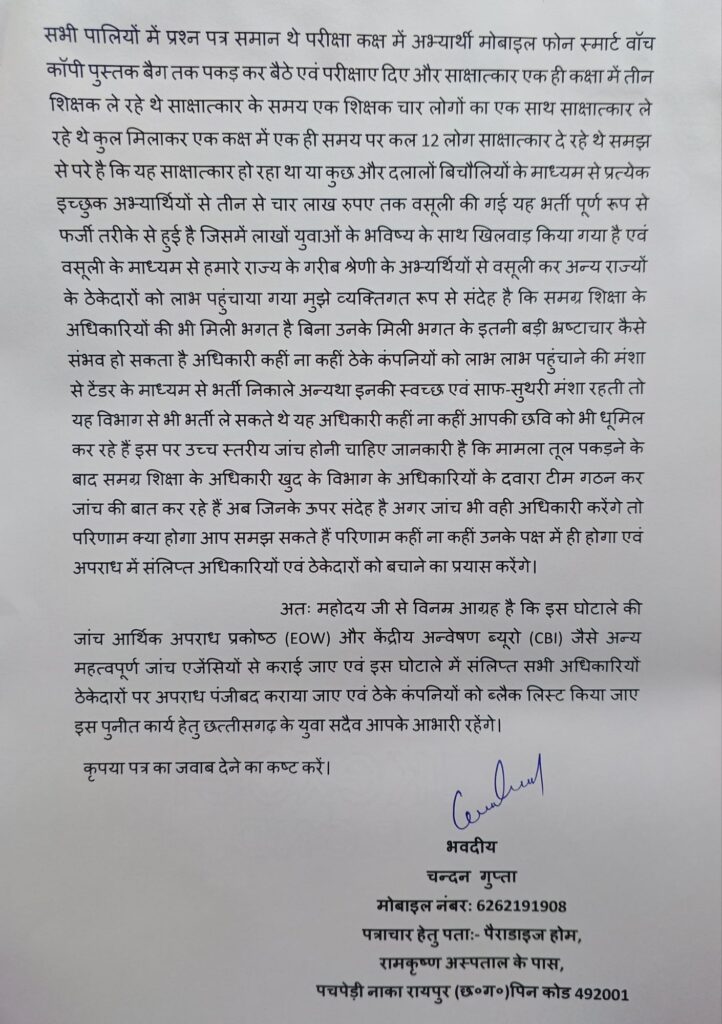 सभी पालियों में प्रश्न पत्र समान थे परीक्षा कक्ष में अभ्यार्थी मोबाइल फोन स्मार्ट वॉच
कॉपी पुस्तक बैग तक पकड़ कर बैठे एवं परीक्षाए दिए और साक्षात्कार एक ही कक्षा में तीन
शिक्षक ले रहे थे साक्षात्कार के समय एक शिक्षक चार लोगों का एक साथ साक्षात्कार ले
रहे थे कुल मिलाकर एक कक्ष में एक ही समय पर कल 12 लोग साक्षात्कार दे रहे थे समझ
से परे है कि यह साक्षात्कार हो रहा था या कुछ और दलालों बिचौलियों के माध्यम से प्रत्येक
इच्छुक अभ्यार्थियों से तीन से चार लाख रुपए तक वसूली की गई यह भर्ती पूर्ण रूप से
फर्जी तरीके से हुई है जिसमें लाखों युवाओं के भविष्य के साथ खिलवाड़ किया गया है एवं
वसूली के माध्यम से हमारे राज्य के गरीब श्रेणी के अभ्यर्थियों से वसूली कर अन्य राज्यों
के ठेकेदारों को लाभ पहुंचाया गया मुझे व्यक्तिगत रूप से संदेह है कि समग्र शिक्षा के
अधिकारियों की भी मिली भगत है बिना उनके मिली भगत के इतनी बड़ी भ्रष्टाचार कैसे
संभव हो सकता है अधिकारी कहीं ना कहीं ठेके कंपनियों को लाभ लाभ पहुंचाने की मंशा
से टेंडर के माध्यम से भर्ती निकाले अन्यथा इनकी स्वच्छ एवं साफ-सुथरी मंशा रहती तो
यह विभाग से भी भर्ती ले सकते थे यह अधिकारी कहीं ना कहीं आपकी छवि को भी धूमिल
कर रहे हैं इस पर उच्च स्तरीय जांच होनी चाहिए जानकारी है कि मामला तूल पकड़ने के
बाद समग्र शिक्षा के अधिकारी खुद के विभाग के अधिकारियों के दवारा टीम गठन कर
जांच की बात कर रहे हैं अब जिनके ऊपर संदेह है अगर जांच भी वही अधिकारी करेंगे तो
परिणाम क्या होगा आप समझ सकते हैं परिणाम कहीं ना कहीं उनके पक्ष में ही होगा एवं
अपराध में संलिप्त अधिकारियों एवं ठेकेदारों को बचाने का प्रयास करेंगे।
अतः महोदय जी से विनम्र आग्रह है कि इस घोटाले की
जांच आर्थिक अपराध प्रकोष्ठ (EOW) और केंद्रीय अन्वेषण ब्यूरो (CBI) जैसे अन्य
महत्वपूर्ण जांच एजेंसियों से कराई जाए एवं इस घोटाले में संलिप्त सभी अधिकारियों
ठेकेदारों पर अपराध पंजीबद कराया जाए एवं ठेके कंपनियों को ब्लैक लिस्ट किया जाए
इस पुनीत कार्य हेतु छत्तीसगढ़ के युवा सदैव आपके आभारी रहेंगे।
कृपया पत्र का जवाब देने का कष्ट करें।
भवदीय
चन्दन गुप्ता
मोबाइल नंबर: 6262191908
पत्राचार हेतु पताः- पैराडाइज होम,
रामकृष्ण अस्पताल के पास,
पचपेड़ी नाका रायपुर (छ०ग०)पिन कोड 492001